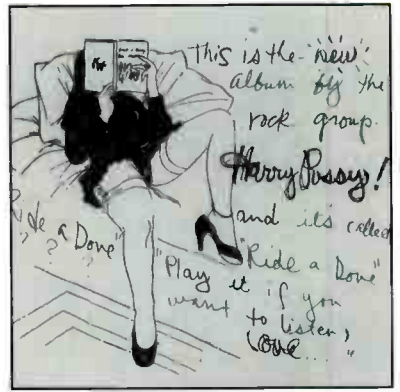 This is the "new"
album by the
rock group.
Harry Pussy!
and it's called
"Ride a Dove"
"Play it if you
want to listen,
Love...."
Ride a Dove"
? ?